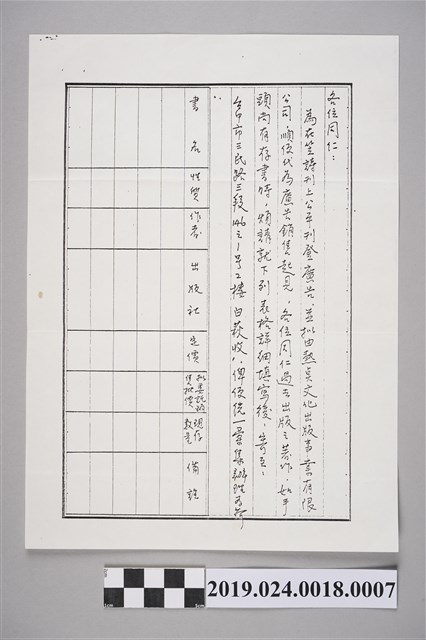 各位同仁：
為在笠詩刊上公平刊登廣告，並擬由熱点文化出版事業有限
公司，順便代為廣告銷售起見，各位同仁過去出版之著作，如手
頭尚有存書時，煩請就下列表格詳細填寫後，寄至：
台中市三民路三段146之1号2樓白萩收，俾便統一彙集辦理為荷
書名
性質
作者
出版社
定價
批價
現存數量
備註
2019.024.0018.0007